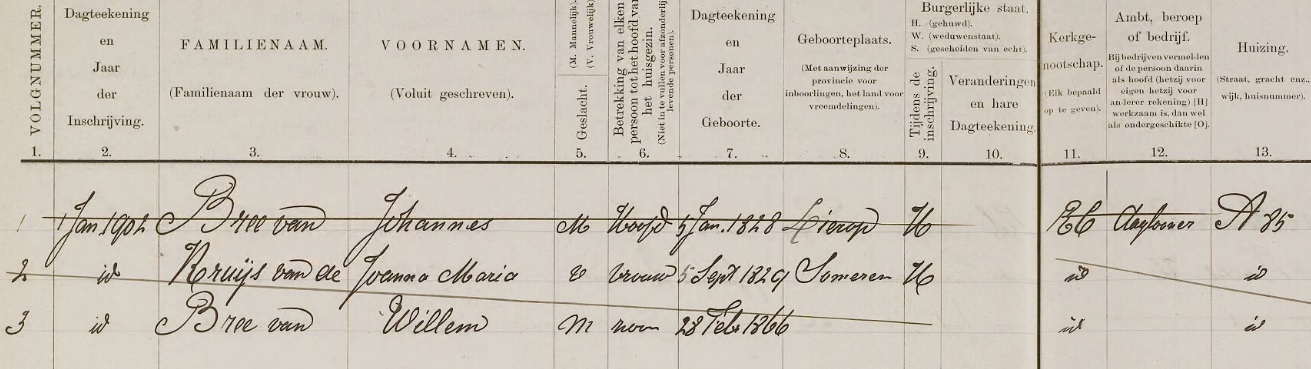 VOLGNUMMER.
Dagteekening
en
Jaar
der
Inschrijving.
FAMILIENAAM.
(Familienaam der vrouw).
VOORNAMEN.
(Voluit geschreven).
(M. Mannelijk).
(V. Vrouwelijk).
Geslacht.
Betrekking van elken
persoon tot het hoofd van
het huisgezin.
(Niet in te vullen voor afzonderlijk
levende personen).
Dagteekening
en
Jaar
der
Geboorte.
Geboorteplaats.
(Met aanwijzing der
provincie voor
inboorlingen, het land voor
vreemdelingen).
Burgerlijke staat.
H. (gehuwd).
W. (weduwenstaat).
S. (gescheiden van echt).
Tijdens de
inschrijving.
Veranderingen
en hare
Dagteekening.
Kerkge-
nootschap.
(Elk bepaald
op te geven).
Ambt, beroep
of bedrijf.
Bij bedrijven vermelden
of de persoon daarin
als hoofd (hetzij voor
eigen hetzij voor
anderer rekening) [H]
werkzaam is, dan wel
als ondergeschikte [O].
Huizing.
(Straat, gracht enz.,
wijk, huisnummer).
1. 2. 3. 4. 5. 6. 7. 8. 9. 10. 11. 12. 13.
1 1 Jan. 1902 Bree van Johannes M Hoofd 5 Jan. 1828 Lierop H RC A 85
2 id Kruijs van de Joanna Maria v vrouw 5 Sept 1829 Someren H id id
3 id Bree van Willem M zoon 28 Feb. 1866 id id